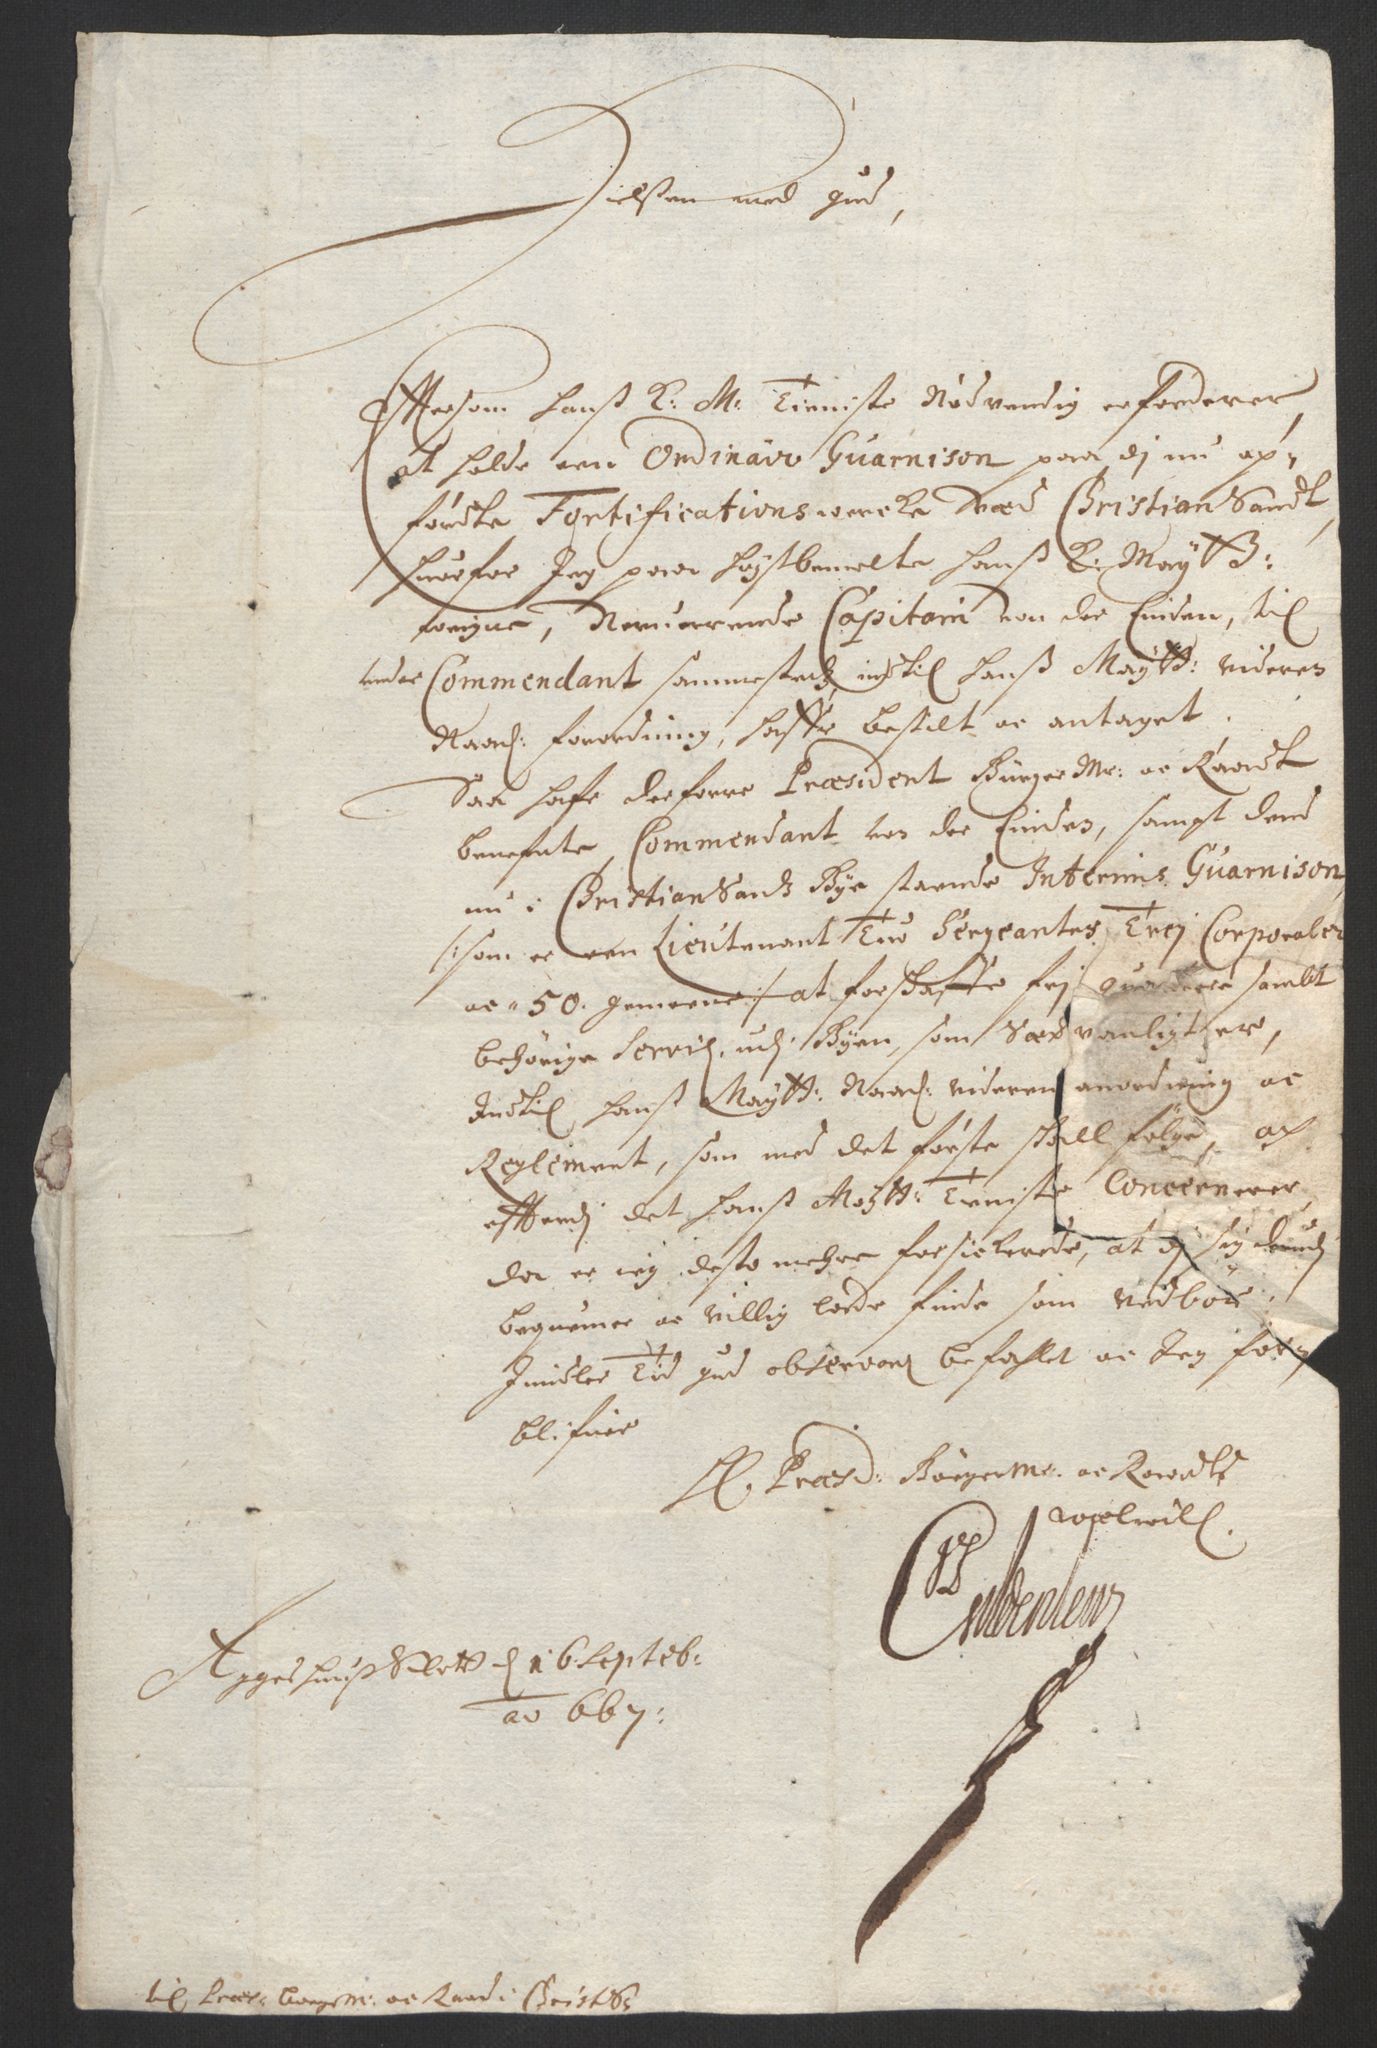 Hielsen med gud,
Effttersom Hanß K: M: Tieniste Nødvendig erforderer,
at holde een Ordinairo Guarnison paa dj nu op-
førdte Fortifications wercke ved Christian Sandt,
huorfor Jeg paa høystbemelte Hanß K: Maytts:
weigne, Neruerende Capitain von der Linden, til
under Commendant sammestedz, indtil Hanß Maytt: videre
Naad: forordning, haffr bestilt oc antaget.
Saa hafr derforre Præsident Bürger Mr: oc Raadt
benefnte, Commendant von der Linden, sampt dend
nu i Christian Sandz Bye staende Interims Guarnison
/:som er een Lieutenant Tuo Sergeanter, Trej Corporaler
oc 50. gemeene:/ at forskaffe frj quarteer sambt
behørige Servis, udj Byen, som Sædvanligt er,
Indtil Hanß Maytt: Naad: videre anordning oc
Reglement, som med det første skall følge, oc
effterdj det Hanß Maytt: Tieniste Concernerer,
da er ieg desto mehre forsickerede, at dj sig derudj
beqvemer oc Villig lade finde som vedbør.
Imidler Tid gud observand befahlet oc Jeg for-
blifuer
Hl. Præsd: Börgerme: oc Raadtz
welvil.
Gyldenlew
Aggershuuß Slott d 16 Septeb:
ao 667:
til Præs: Borgem: oc Raad i Christ S: